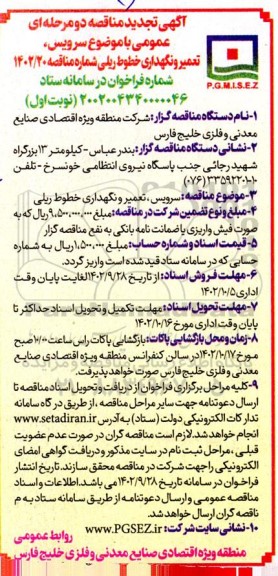 آگهی تجدید مناقصه دو مرحله ای
عمومی با موضوع سرویس،
تعمیر و نگهداری خطوط ریلی شماره مناقصه ۱۴۰۲/۲۰
شماره فراخوان در سامانه ستاد
۲۰۰۲۰۰۴۳۴۰۰۰۰۰۴۶ (نوبت اول)
P.G.M.I.S.E.Z
۱-نام دستگاه مناقصه گزار: شرکت منطقه ویژه اقتصادی صنایع
معدنی و فلزی خلیج فارس
۲-نشانی دستگاه مناقصه گزار: بندرعباس-کیلومتر ۱۳ بزرگراه
شهید رجائی جنب پاسگاه نیروی انتظامی خونسرخ - تلفن
(۰۷۶)
۳-موضوع مناقصه: سرویس، تعمیر و نگهداری خطوط ریلی
۴-مبلغ و نوع تضمین شرکت در مناقصه: مبلغ ۹،۵۰۰،۰۰۰،۰۰۰ ریال که به
صورت فیش واریزی یا ضمانت نامه بانکی به نفع مناقصه گزار
۵-قیمت اسناد و شماره حساب: مبلغ ۱،۵۰۰،۰۰۰ ریال به شماره
حسابی که در سامانه ستاد قید شده است واریز گردد.
۶-مهلت فروش اسناد: از تاریخ ۱۴۰۲/۹/۲۸ لغایت پایان وقت
اداری ۱۴۰۲/۱۰/۵
۷-مهلت تحویل اسناد: مهلت تکمیل و تحویل اسناد حداکثر تا
پایان وقت اداری مورخ ۱۴۰۲/۱۰/۱۶
۸-زمان و محل بازگشایی پاکات: بازگشایی پاکات راس ساعت ۱۰:۰۰ صبح
مورخ ۱۴۰۲/۱۰/۱۷ در سالن کنفرانس منطقه ویژه اقتصادی صنایع
معدنی و فلزی خلیج فارس صورت خواهد پذیرفت.
۹-کلیه مراحل برگزاری فراخوان از دریافت و تحویل اسناد مناقصه تا
ارسال دعوتنامه جهت سایر مراحل مناقصه، از طریق درگاه سامانه
تدارکات الکترونیکی دولت (ستاد) به آدرس www.setadiran.ir
انجام خواهد شد. لازم است مناقصه گران در صورت عدم عضویت
قبلی، مراحل ثبت نام در سایت مذکور و دریافت گواهی امضای
الکترونیکی را جهت شرکت در مناقصه محقق سازند. تاریخ انتشار
فراخوان در سامانه تاریخ ۱۴۰۲/۹/۲۸ می باشد. اطلاعات و اسناد
مناقصه عمومی و ارسال دعوتنامه از طریق سامانه ستاد به م
ناقصه گران ارسال خواهد شد.
۱۰-نشانی سایت شرکت: www.PGSEZ.ir
روابط عمومی
منطقه ویژه اقتصادی صنایع معدنی و فلزی خلیج فارس